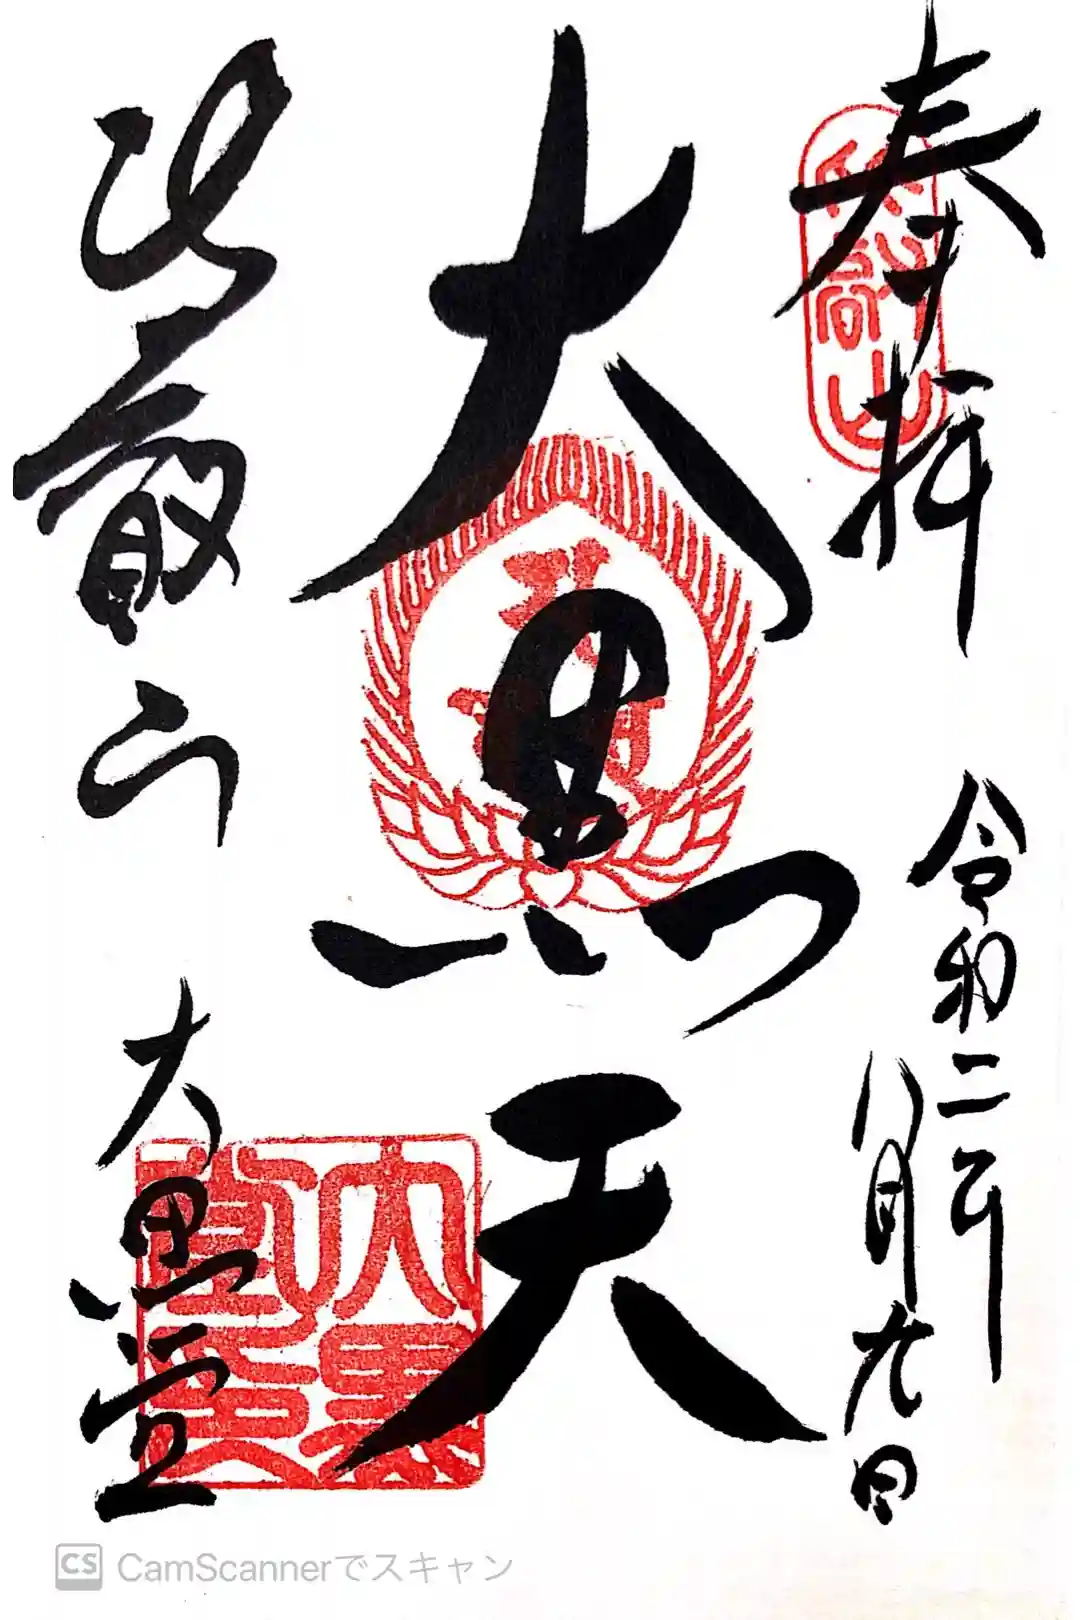 奉拝
比叡山
令和二年
八月九日
大黒天
比叡山
大黒堂
大黒堂印
CS CamScannerでスキャン